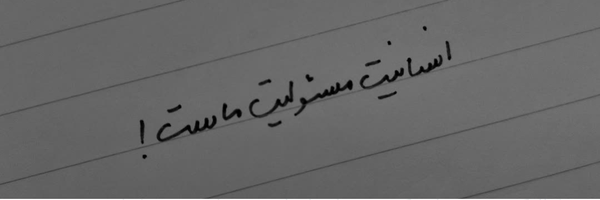 انسانیت مسئولیت ماست!